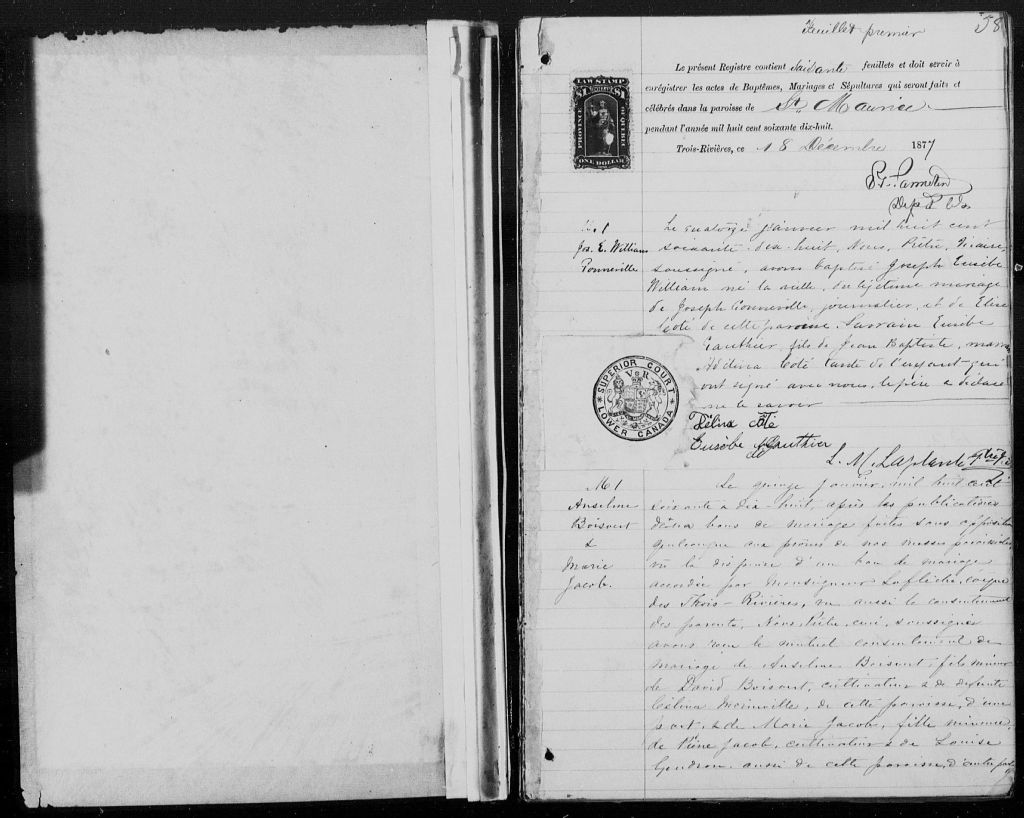 Feuillet premier
58
Le présent Registre contient Soixante feuillets et doit servir à
enrégistrer les actes de Baptêmes, Mariages et Sépultures qui seront faits et
célébrés dans la paroisse de St. Maurice
pendant l'année mil huit cent soixante dix-huit.
Trois-Rivières, ce 18 Décembre 1877
LAW STAMP
PROVINCE OF QUEBEC
ONE DOLLAR
Jos. E. William
Bonneville
Le quatorze janvier mil huit cent
soixante-dix-huit, Nous, Prêtre, Vicaire,
soussigné, avons baptisé Joseph Eusèbe
William né la veille, du légitime mariage
de Joseph Bonneville, journalier, et de Elise
Coté de cette paroisse. Parrain Eusèbe
Gauthier, fils de Jean Baptiste, marraine
Coté tante de l'enfant qui
ont signé avec nous, le père a déclaré
ne le savoir
SUPERIOR COURT
V R
LOWER CANADA
Délina côté
Eusèbe Gauthier
L. M. Laplante
M1
Anselme
Boisvert
&
Marie
Jacob.
Le quinze Janvier, mil huit cent
soixante & dix-huit, après les publications
de deux bans de mariage faites sans opposition
quelconque aux prônes de nos messes paroissiales,
vu la dispense d'un ban de mariage
accordée par Monseigneur Laflèche, évêque
des Trois-Rivières, vu aussi le consentement
des parents, Nous Prêtre, curé, soussigné
avons reçu le mutuel consentement de
mariage de Anselme Boisvert, fils mineur
de David Boisvert, cultivateur & de défunte
Célina de cette paroisse, d'une
part, & de Marie Jacob, fille mineure
de Pierre Jacob, cultivateur & de Louise
Gendron aussi de cette paroisse, d'autre part